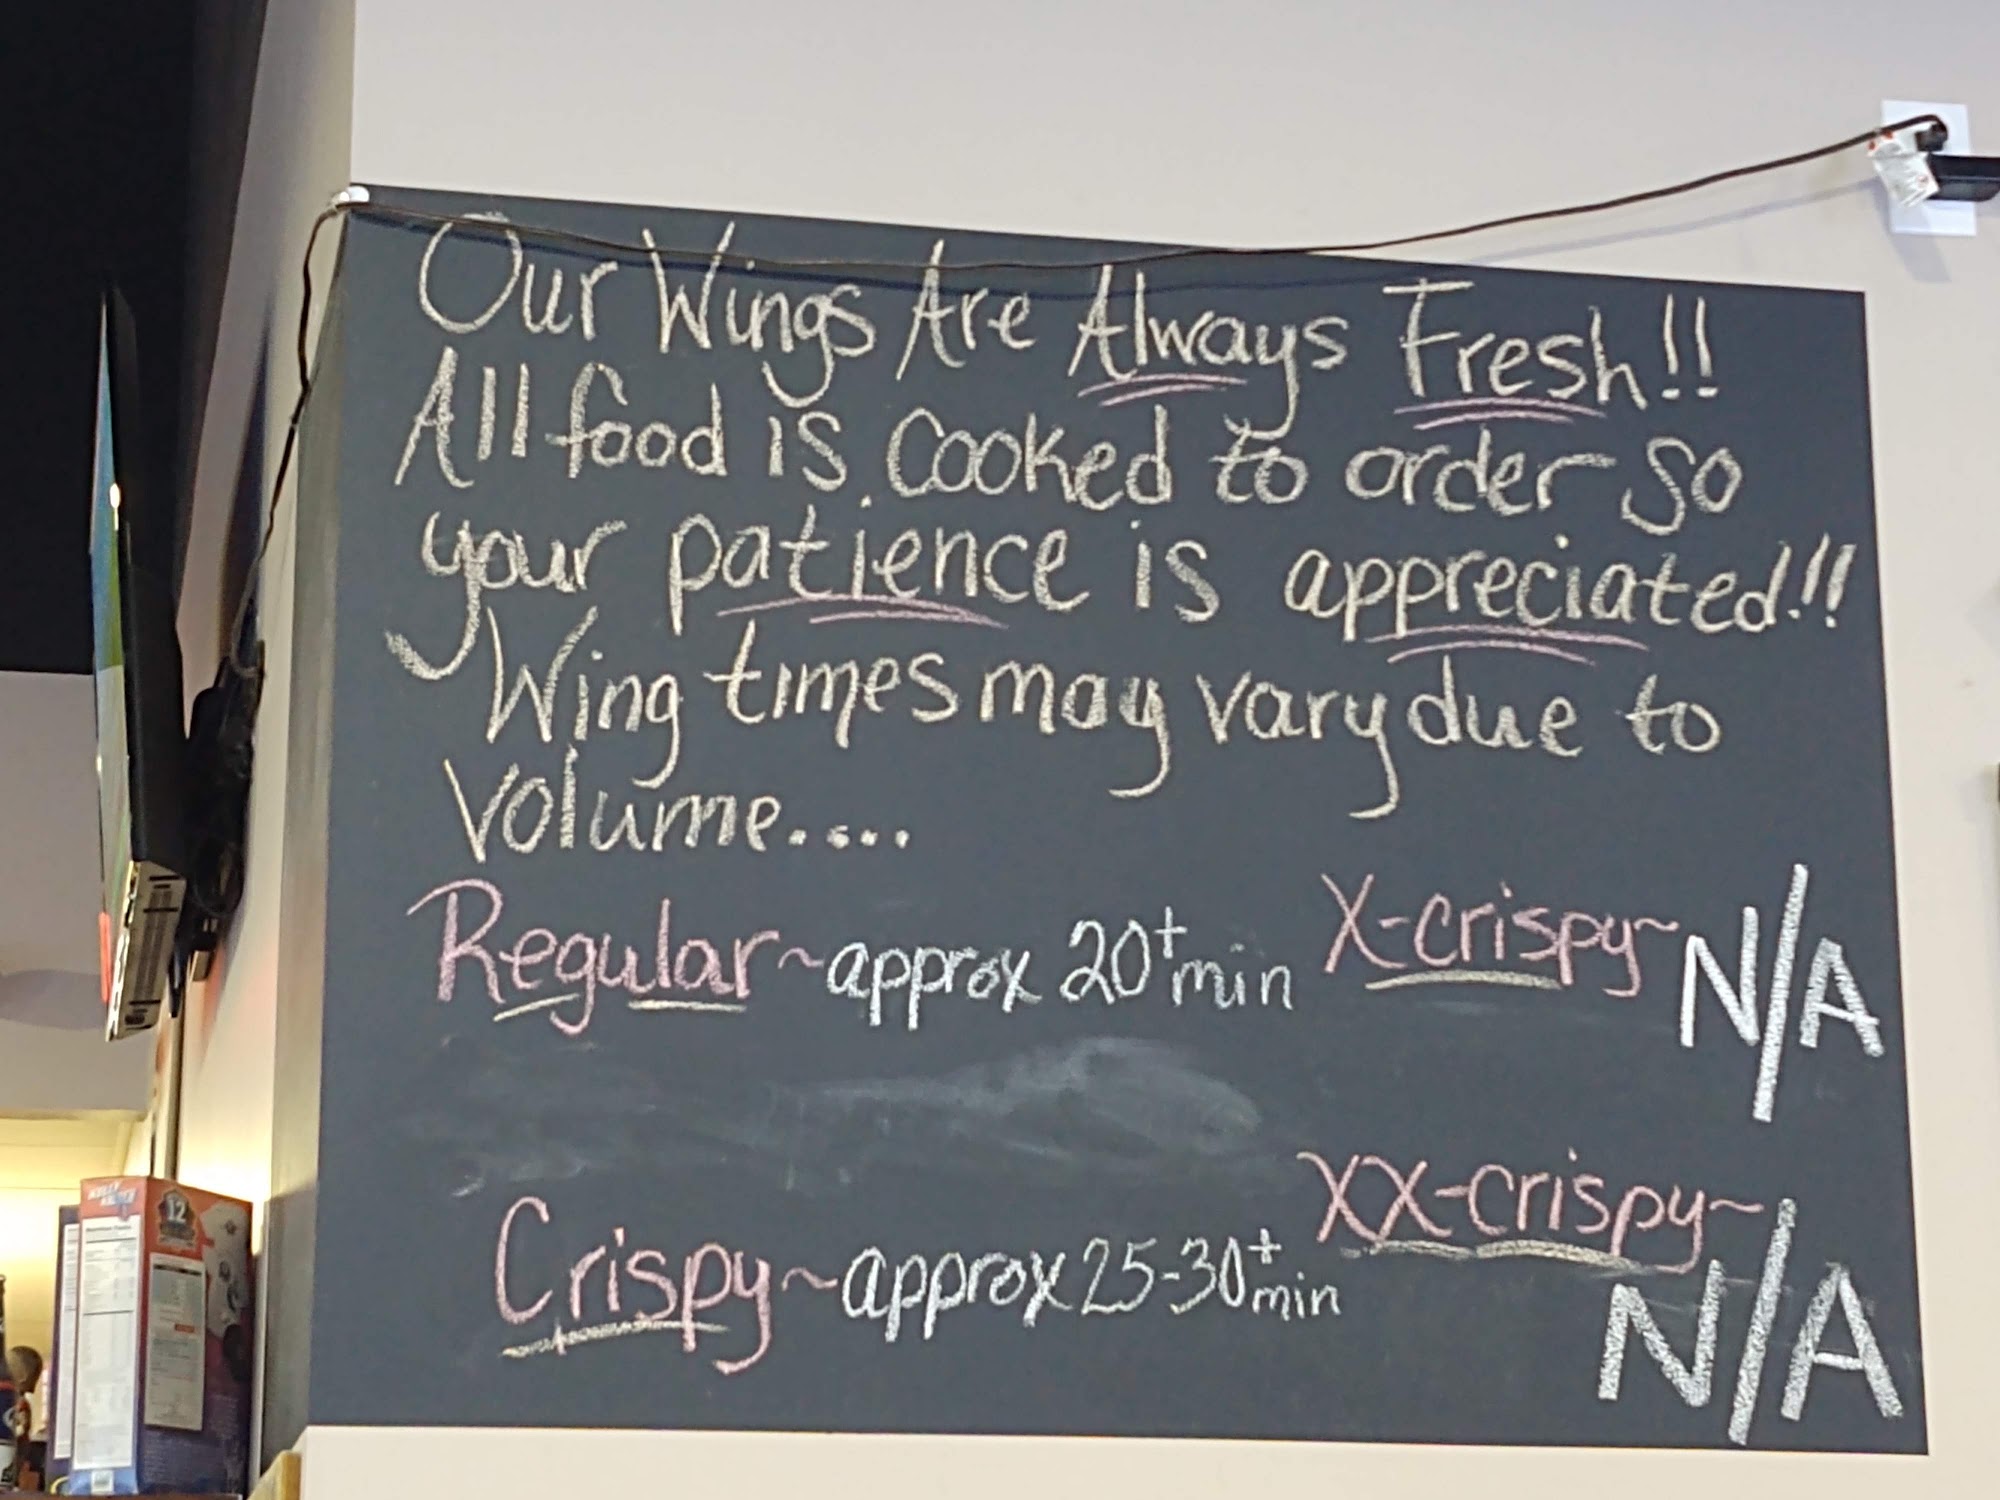 Our Wings Are Always Fresh!!
All food is cooked to order so
your patience is appreciated!!!
Wing times may vary due to
volume....
Regular~approx 20+ min
X-crispy~ N/A
Crispy~approx 25-30+ min
XX-crispy~
N/A
12